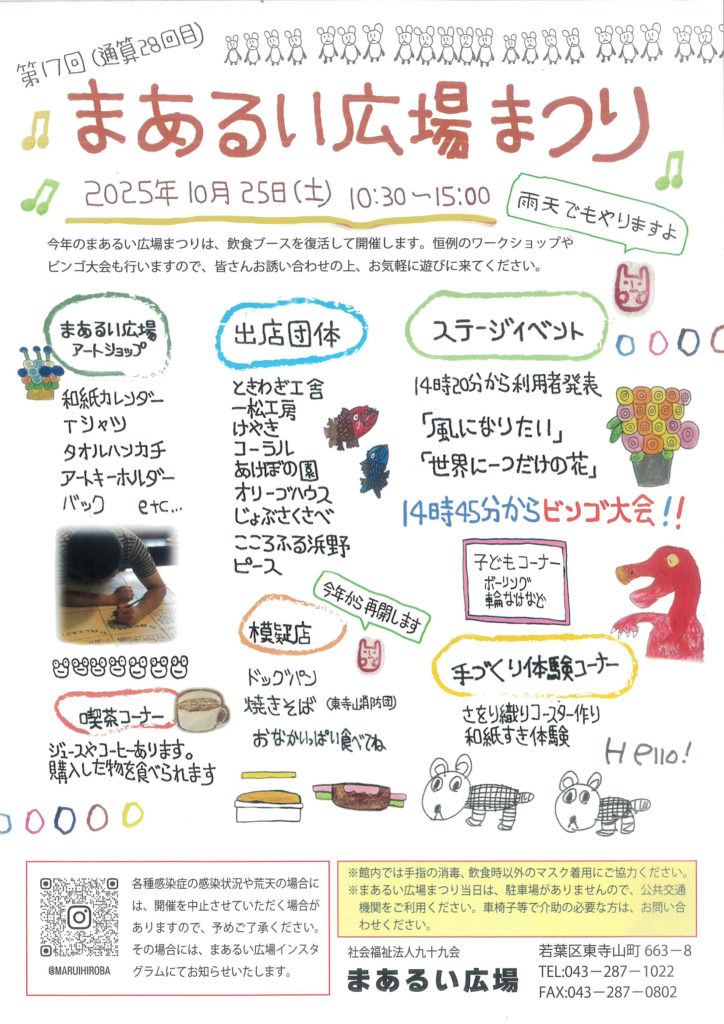 第17回(通算28回目)
まあるい広場まつり
2025年10月25日(土) 10:30〜15:00
雨天でもやりますよ
今年のまあるい広場まつりは、飲食ブースを復活して開催します。恒例のワークショップや
ビンゴ大会も行いますので、皆さんお誘い合わせの上、お気軽に遊びに来てください。
まあるい広場
アートショップ
和紙カレンダー
Tシャツ
タオルハンカチ
アートキーホルダー
バック etc...
出店団体
ときわぎ工舎
一松工房
けやき
コーラル
あけぼの園
オリーブハウス
じょぶさくさべ
こころふる浜野
ピース
ステージイベント
14時20分から利用者発表
「風になりたい」
「世界に一つだけの花」
14時45分からビンゴ大会!!
子どもコーナー
ボーリング
輪なげなど
今年から再開します
模疑店
ドッグパン
焼きそば(東寺山消防団)
おなかいっぱい食べてね
手づくり体験コーナー
さをり織りコースター作り
和紙すき体験
Hello!
喫茶コーナー
ジュースやコーヒーあります。
購入した物を食べられます
@MARUIHIROBA
各種感染症の感染状況や荒天の場合に
は、開催を中止させていただく場合が
ありますので、予めご了承ください。
その場合には、まあるい広場インスタ
グラムにてお知らせいたします。
※館内では手指の消毒、飲食時以外のマスク着用にご協力ください。
※まあるい広場まつり当日は、駐車場がありませんので、公共交通
機関をご利用ください。車椅子等で介助の必要な方は、お問い合
わせください。
社会福祉法人九十九会
まあるい広場
若葉区東寺山町 663－8
TEL:043－287－1022
FAX:043－287－0802